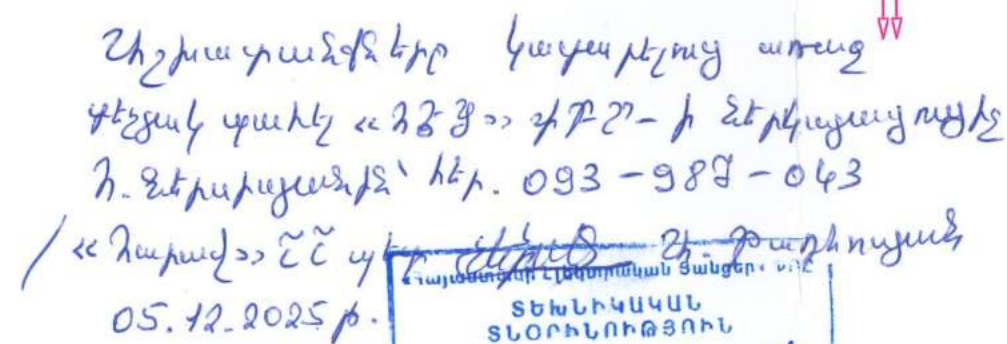 Աշխատանքները կատարելուց առաջ
տեղյակ պահել «ՀԷՑ» ՓԲԸ-ի ներկայացուցիչ
Հ. Ներսիսյանին՝ հեռ. 093-987-043
«Հարավ» ՇՇ պետ
05.12.2025թ.
«Հայաստանի Էլեկտրական Ցանցեր» ՓԲԸ
ՏԵԽՆԻԿԱԿԱՆ
ՏՆՕՐԻՆՈՒԹՅՈՒՆ